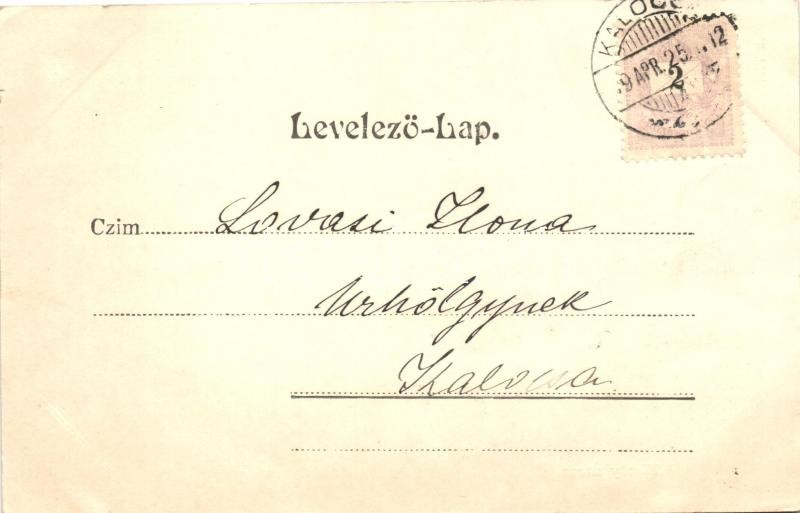 KALOCS
9 APR. 25. 12
2
Levelező-Lap.
Czim Lovasi Ilona
Urhölgynek
Kalocsa